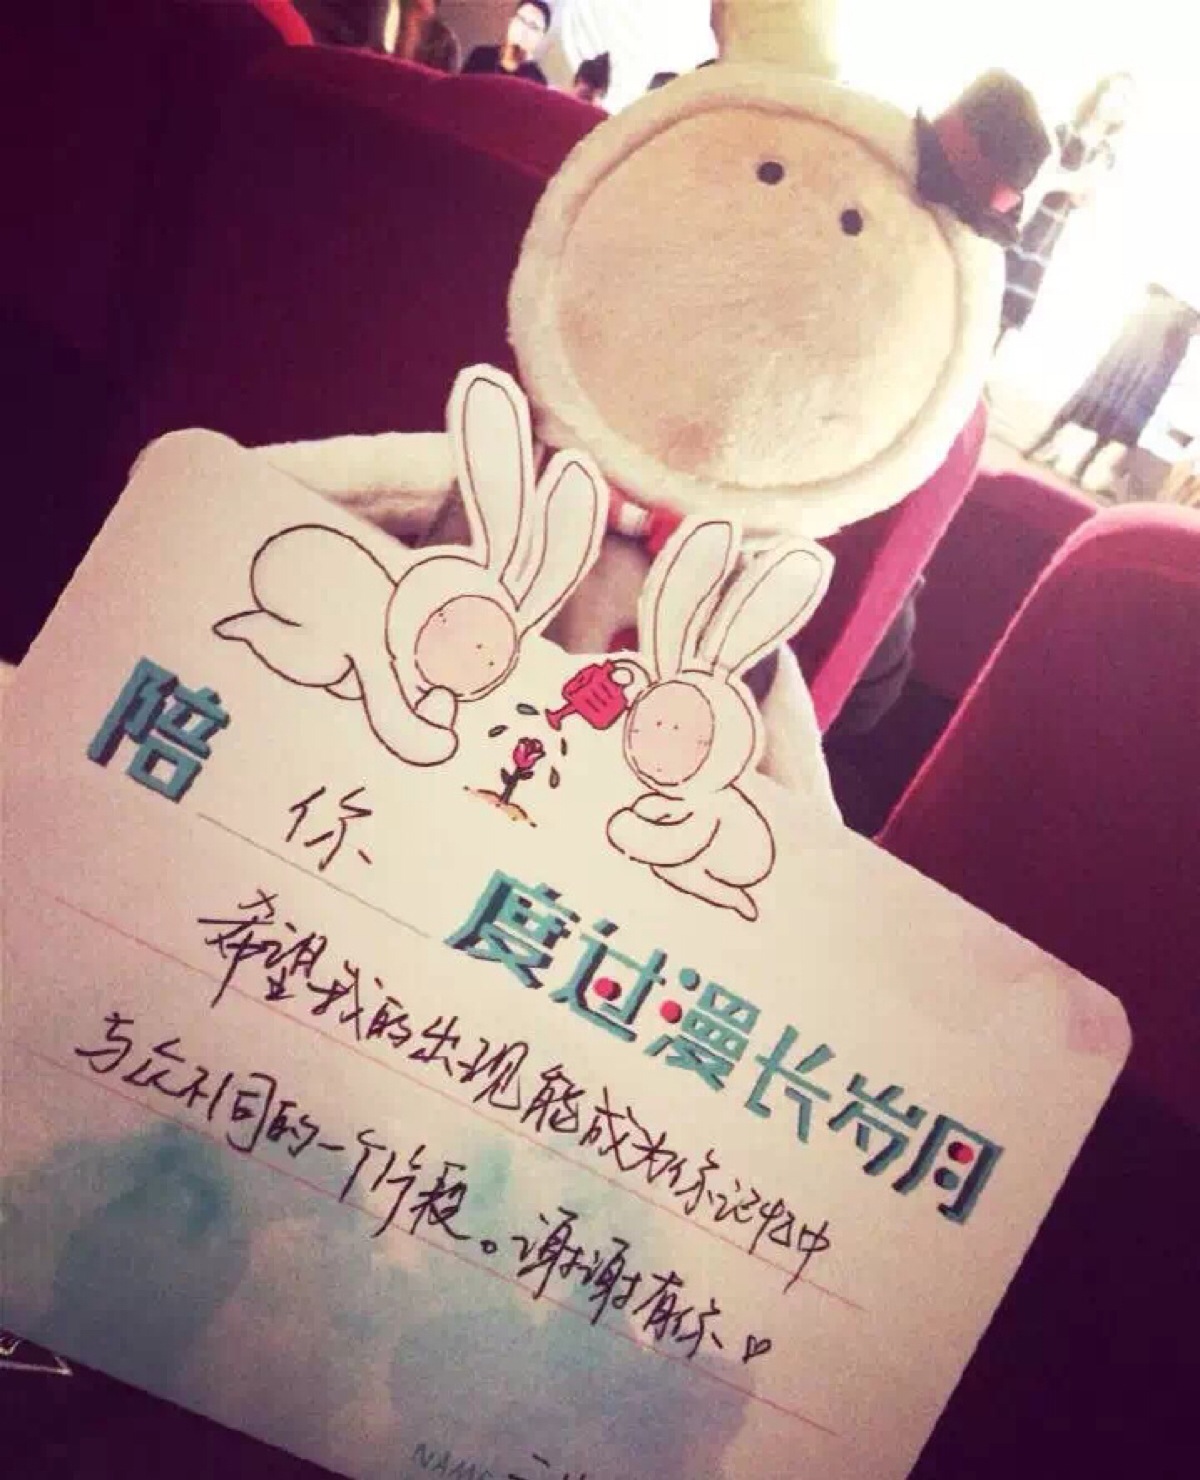 陪 你 度过漫长岁月
希望我的出现能成为你记忆中
与众不同的一个片段。谢谢有你♡
NAME